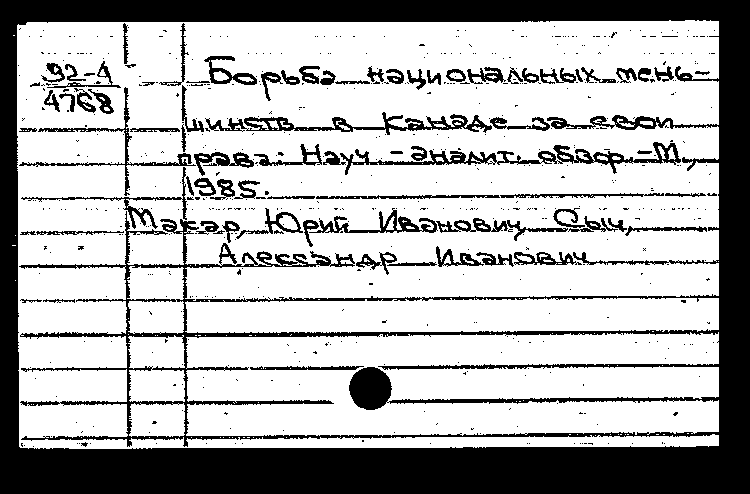 92-4
4768
Борьба национальных мень-
шинств в Канаде за свои
права: Науч.-аналит. обзор.-М.,
1985.
Макар, Юрий Иванович, Сыч,
Александр Иванович